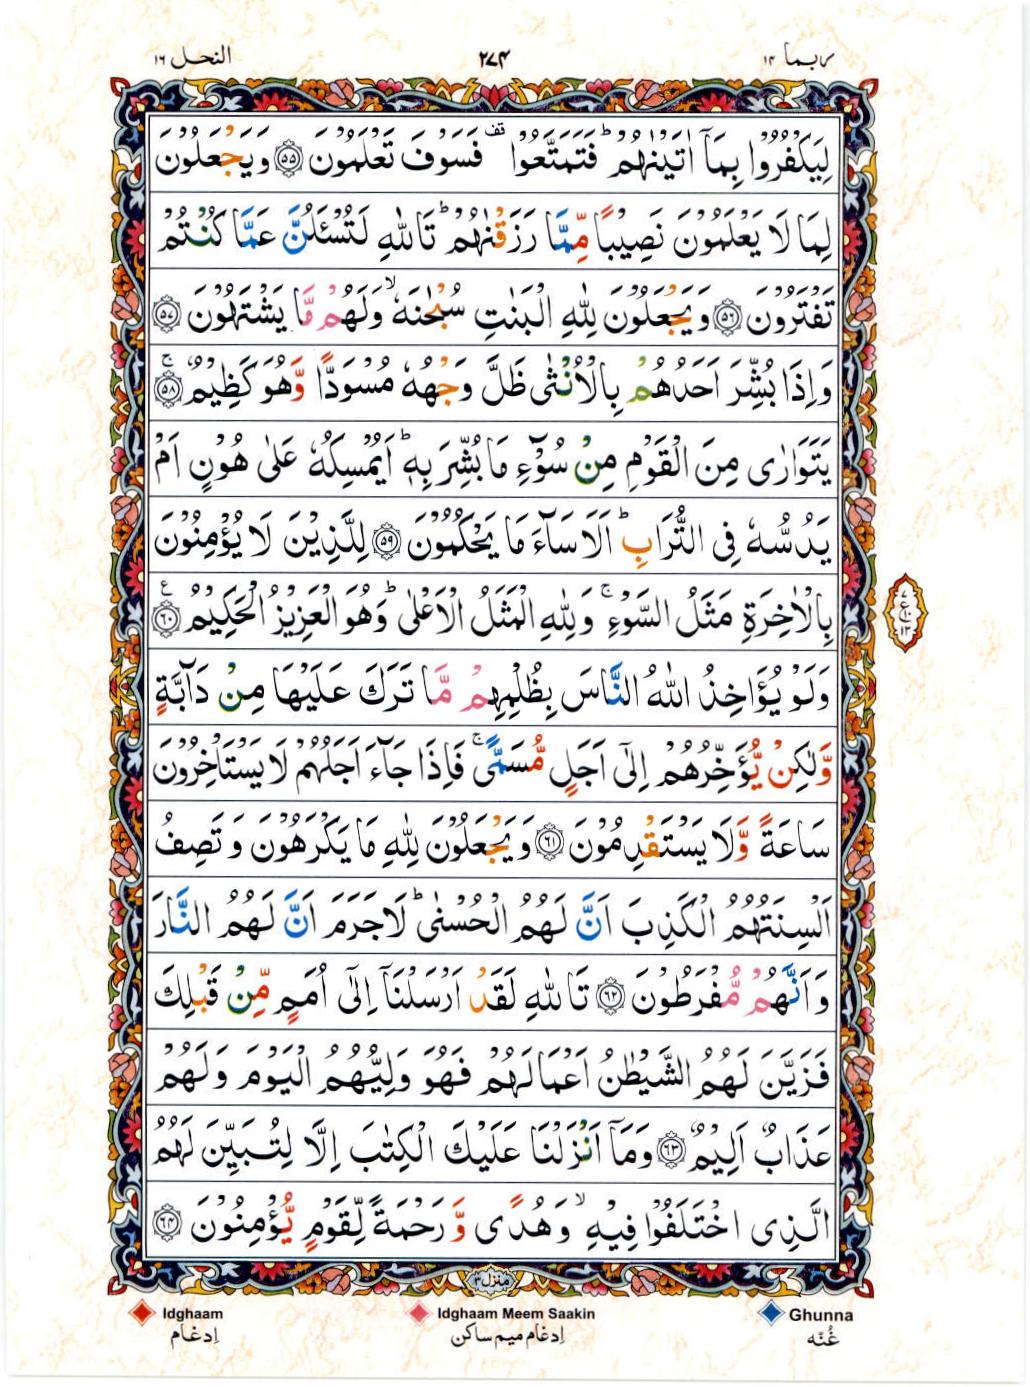 النحل ١٦
٢٧٤
ربما ١٤
لِيَكْفُرُوْا بِمَاۤ اٰتَيْنٰهُمْ ؕ فَتَمَتَّعُوْا ۫ فَسَوْفَ تَعْلَمُوْنَ ۝۵۵ وَيَجْعَلُوْنَ
لِمَا لَا يَعْلَمُوْنَ نَصِيْبًا مِّمَّا رَزَقْنٰهُمْ ؕ تَاللّٰهِ لَتُسْـَٔلُنَّ عَمَّا كُنْتُمْ
تَفْتَرُوْنَ ۝۵۶ وَيَجْعَلُوْنَ لِلّٰهِ الْبَنٰتِ سُبْحٰنَهٗ ۙ وَلَهُمْ مَّا يَشْتَهُوْنَ ۝۵۷
وَاِذَا بُشِّرَ اَحَدُهُمْ بِالْاُنْثٰى ظَلَّ وَجْهُهٗ مُسْوَدًّا وَّهُوَ كَظِيْمٌ ۚ۝۵۸
يَتَوَارٰى مِنَ الْقَوْمِ مِنْ سُوْٓءِ مَا بُشِّرَ بِهٖ ؕ اَيُمْسِكُهٗ عَلٰى هُوْنٍ اَمْ
يَدُسُّهٗ فِى التُّرَابِ ؕ اَلَا سَآءَ مَا يَحْكُمُوْنَ ۝۵۹ لِلَّذِيْنَ لَا يُؤْمِنُوْنَ
بِالْاٰخِرَةِ مَثَلُ السَّوْءِ ۚ وَلِلّٰهِ الْمَثَلُ الْاَعْلٰى ؕ وَهُوَ الْعَزِيْزُ الْحَكِيْمُ ۝۶۰ ع
وَلَوْ يُؤَاخِذُ اللّٰهُ النَّاسَ بِظُلْمِهِمْ مَّا تَرَكَ عَلَيْهَا مِنْ دَآبَّةٍ
وَّلٰكِنْ يُّؤَخِّرُهُمْ اِلٰٓى اَجَلٍ مُّسَمًّى ۚ فَاِذَا جَآءَ اَجَلُهُمْ لَا يَسْتَاْخِرُوْنَ
سَاعَةً وَّلَا يَسْتَقْدِمُوْنَ ۝۶۱ وَيَجْعَلُوْنَ لِلّٰهِ مَا يَكْرَهُوْنَ وَتَصِفُ
اَلْسِنَتُهُمُ الْكَذِبَ اَنَّ لَهُمُ الْحُسْنٰى ؕ لَا جَرَمَ اَنَّ لَهُمُ النَّارَ
وَاَنَّهُمْ مُّفْرَطُوْنَ ۝۶۲ تَاللّٰهِ لَقَدْ اَرْسَلْنَاۤ اِلٰٓى اُمَمٍ مِّنْ قَبْلِكَ
فَزَيَّنَ لَهُمُ الشَّيْطٰنُ اَعْمَالَهُمْ فَهُوَ وَلِيُّهُمُ الْيَوْمَ وَلَهُمْ
عَذَابٌ اَلِيْمٌ ۝۶۳ وَمَاۤ اَنْزَلْنَا عَلَيْكَ الْكِتٰبَ اِلَّا لِتُبَيِّنَ لَهُمُ
الَّذِى اخْتَلَفُوْا فِيْهِ ۙ وَهُدًى وَّرَحْمَةً لِّقَوْمٍ يُّؤْمِنُوْنَ ۝۶۴
٧ ع١٠ ١٣
منزل ٣
Idghaam
Idghaam Meem Saakin
Ghunna
اِدغام
اِدغام میم ساکن
غُنّه